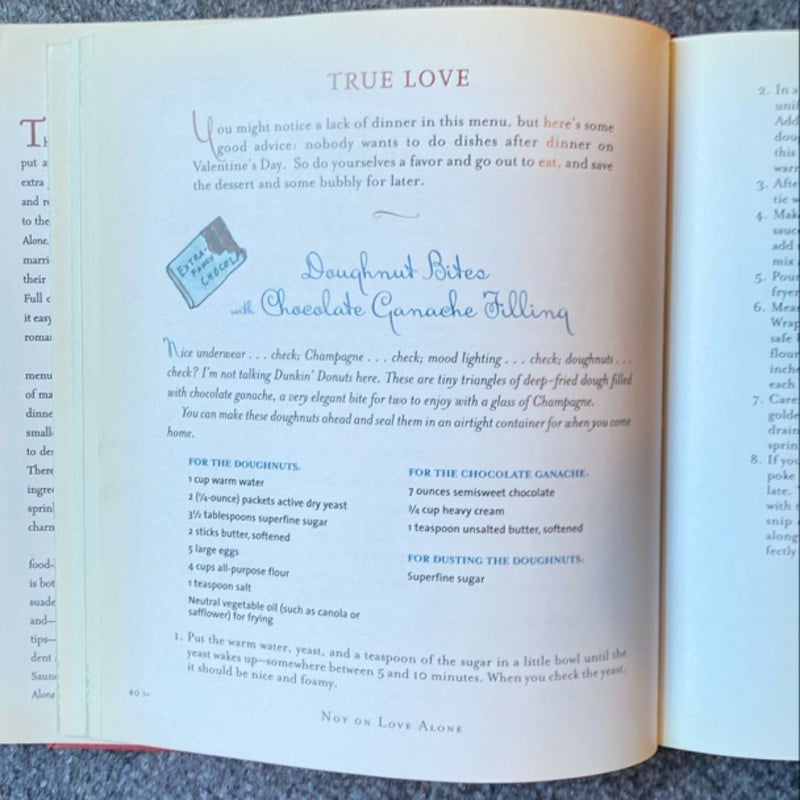 TRUE LOVE
You might notice a lack of dinner in this menu, but here's some
good advice: nobody wants to do dishes after dinner on
Valentine's Day. So do yourselves a favor and go out to eat, and save
the dessert and some bubbly for later.
EXTRA-
FANCY
CHOCOLA
Doughnut Bites
with Chocolate Ganache Filling
Nice underwear . . . check; Champagne . . . check; mood lighting . . . check; doughnuts . . .
check? I'm not talking Dunkin' Donuts here. These are tiny triangles of deep-fried dough filled
with chocolate ganache, a very elegant bite for two to enjoy with a glass of Champagne.
You can make these doughnuts ahead and seal them in an airtight container for when you come
home.
FOR THE DOUGHNUTS:
1 cup warm water
2 (¼-ounce) packets active dry yeast
3½ tablespoons superfine sugar
2 sticks butter, softened
5 large eggs
4 cups all-purpose flour
1 teaspoon salt
Neutral vegetable oil (such as canola or
safflower) for frying
FOR THE CHOCOLATE GANACHE:
7 ounces semisweet chocolate
¾ cup heavy cream
1 teaspoon unsalted butter, softened
FOR DUSTING THE DOUGHNUTS:
Superfine sugar
1. Put the warm water, yeast, and a teaspoon of the sugar in a little bowl until the
yeast wakes up—somewhere between 5 and 10 minutes. When you check the yeast,
it should be nice and foamy.
40
NOT ON LOVE ALONE
put a
extra
and
to the
Alone.
marri
their
Full
it easy
roma
menu
of ma
dinne
small
to de
There
ingre
sprin
charm
food-
is bot
suade
and—
tips—
dent
Saun
Alone
2. In a
unif
Add
dou
this
warm
3. Afte
tic w
4. Mak
sauc
add
mix
5. Pour
fryer
6. Mea
Wrap
safe
flour
inche
each
7. Care
golde
drain
sprin
8. If you
poke
late.
with
snip
along
fectly